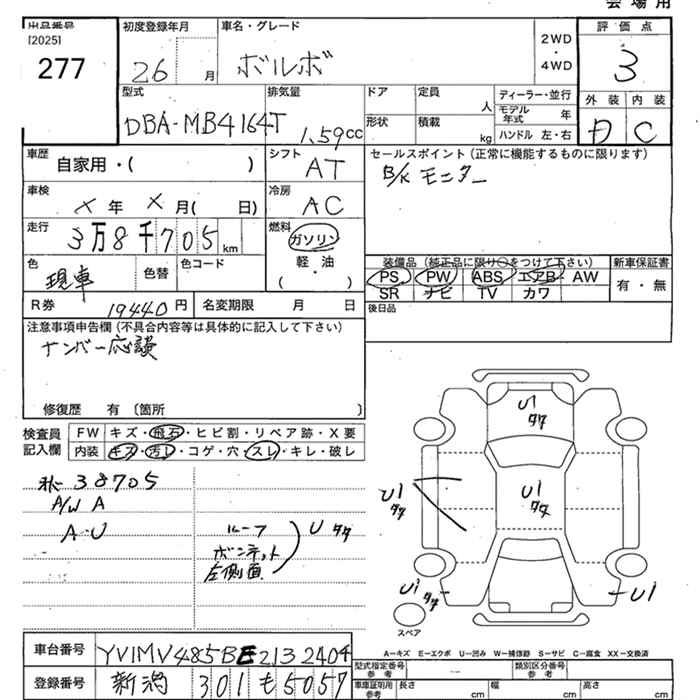 会 場 用
出品番号
[2025]
277
初度登録年月
26 月
車名・グレード
ボルボ
2WD
・
4WD
評 価 点
3
外 装 内 装
D C
型式
DBA-MB4164T
排気量
1.59cc
ドア
形状
定員
人
積載
kg
ディーラー・並行
モデル年式 年
ハンドル 左・右
車歴
自家用・( )
シフト
AT
セールスポイント(正常に機能するものに限ります)
B/K モニター
車検
X 年 X 月( 日)
冷房
AC
走行
3万8千705km
燃料
ガソリン
軽・油
( )
色
現車
色替
色コード
装備品(純正品に限り○をつけて下さい)
PS PW ABS エアB AW
SR ナビ TV カワ
新車保証書
有・無
R券 19440円
名変期限 月 日
後日品
注意事項申告欄(不具合内容等は具体的に記入して下さい)
ナンバー応談
修復歴 有〔箇所 〕
検査員記入欄
FW キズ・飛石・ヒビ割・リペア跡・X要
内装 キズ・汚レ・コゲ・穴・スレ・キレ・破レ
38705
A/W A
A-U
ルーフ
ボンネット
左側面
U タタ
U1
タタ
U1
タタ
U1
タタ
タタ
U1
スペア
A―キズ E―エクボ U―凹み W―補修跡 S―サビ C―腐食 XX―交換済
車台番号 YV1MV485BE2132404
登録番号 新潟 301 も 5057
型式指定番号
参考
類別区分番号
参考
車庫証明用
参考
長さ cm
幅 cm
高さ cm